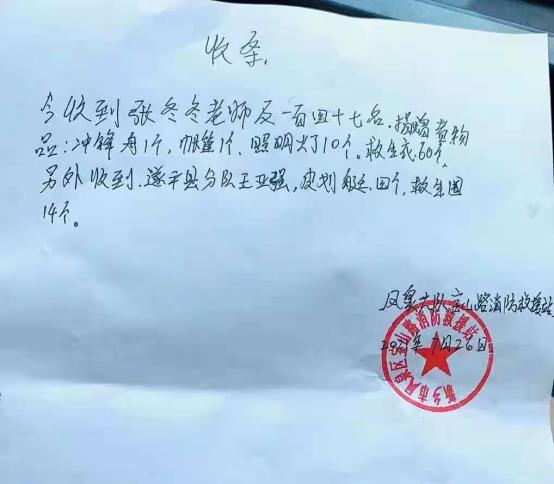 收条
今收到张冬冬老师及一百四十七名,捐赠者物
品:冲锋舟1个,帐篷1个,照明灯10个。救生衣60个,
另外收到,遂平县分队王亚强,皮划艇四个,救生圈
14个。
凤泉大队宝山路消防救援站
2021年7月26日
新乡市凤泉区宝山路消防救援站